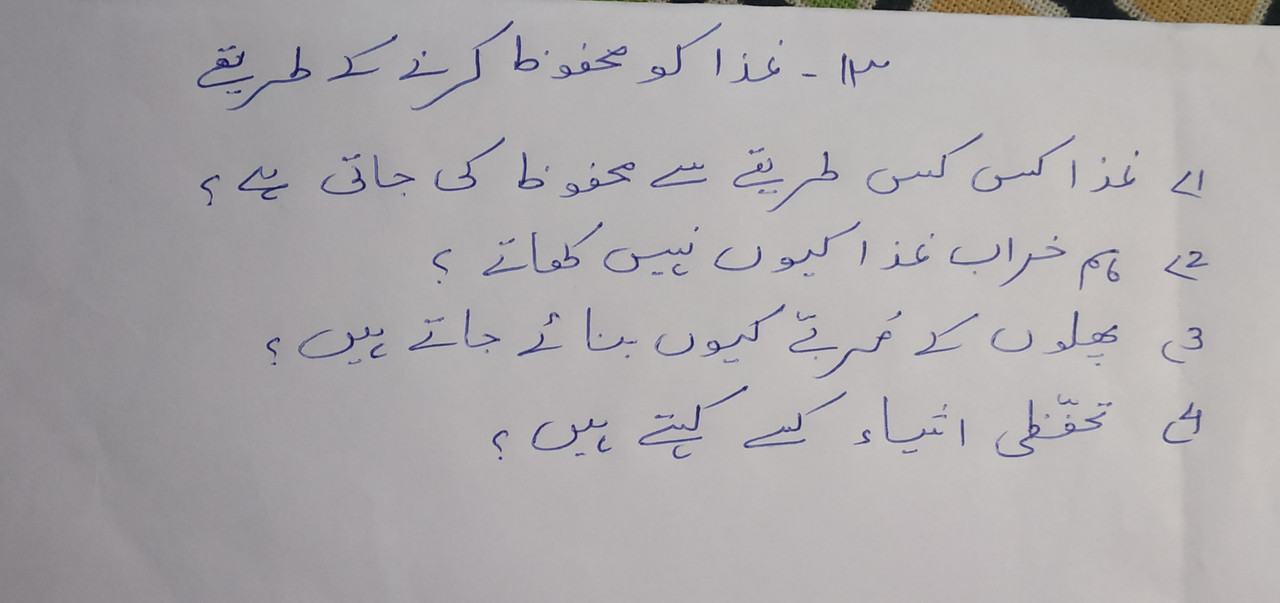 ۱۳۔ غذا کو محفوظ کرنے کے طریقے
1) غذا کس کس طریقے سے محفوظ کی جاتی ہے؟
2) ہم خراب غذا کیوں نہیں کھاتے؟
3) پھلوں کے مُربّے کیوں بنائے جاتے ہیں؟
4) تحفّظی اشیاء کسے کہتے ہیں؟